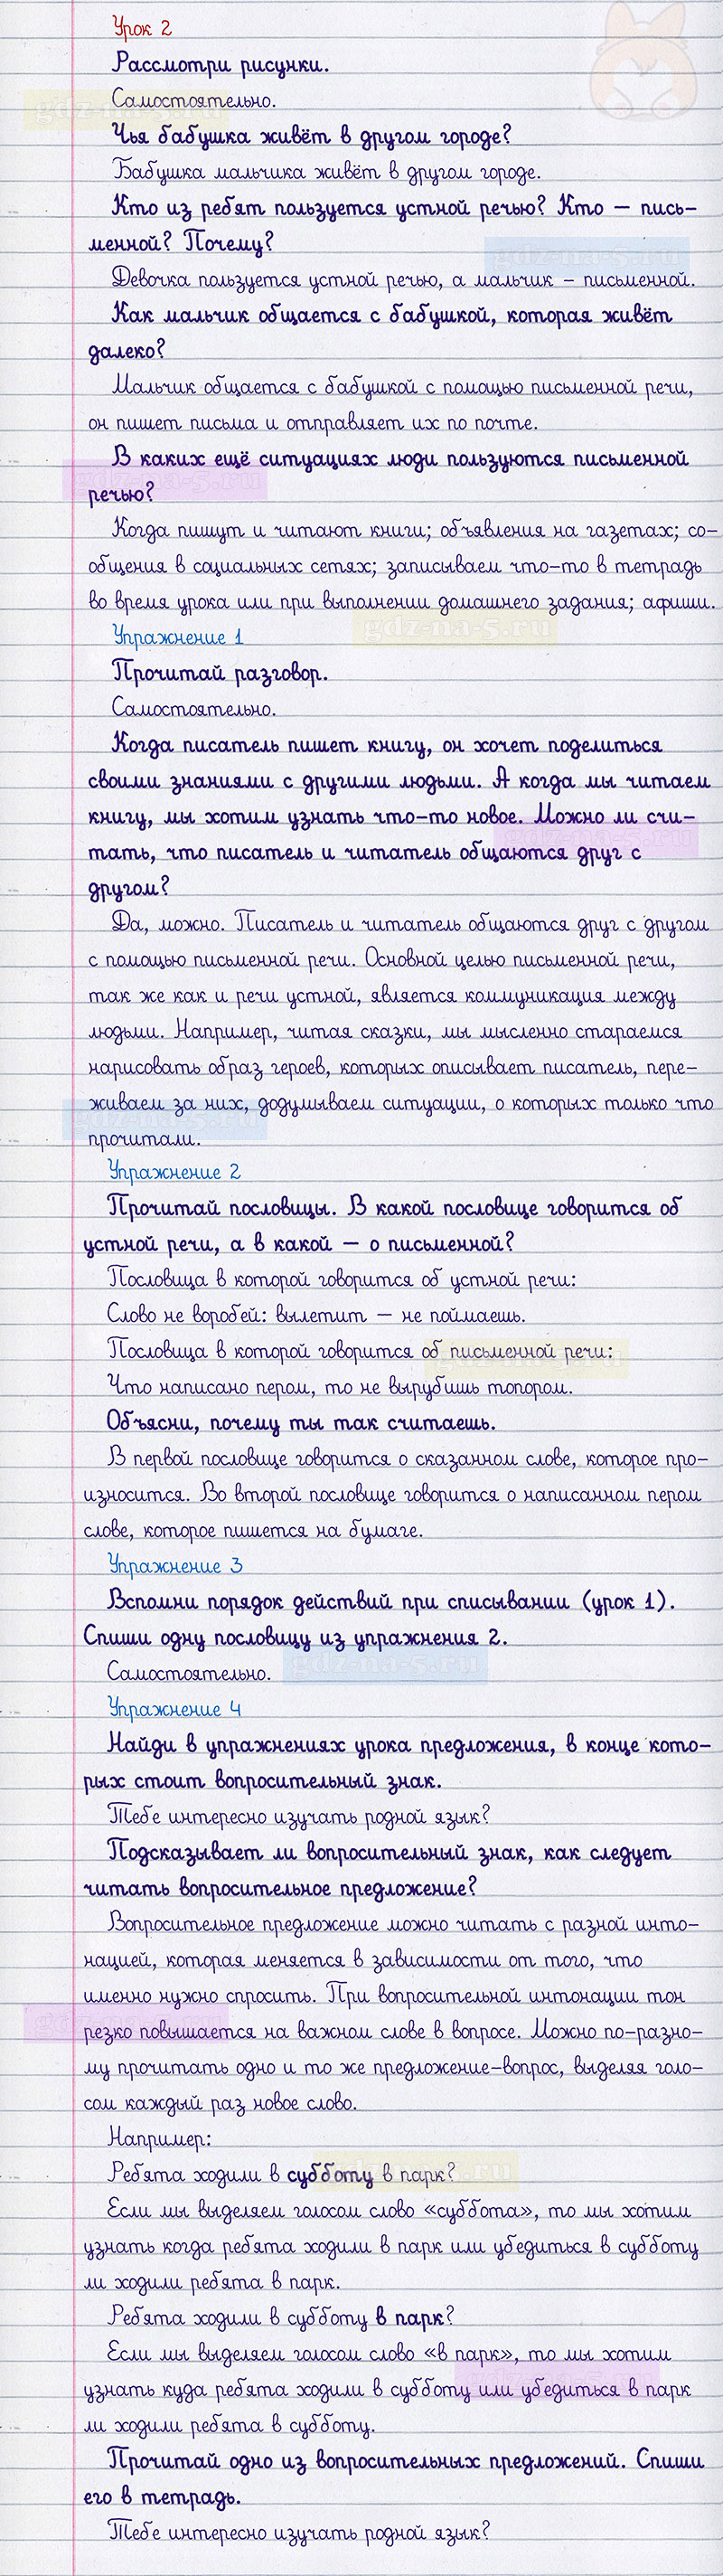 Урок 2
Рассмотри рисунки.
Самостоятельно.
Чья бабушка живёт в другом городе?
Бабушка мальчика живёт в другом городе.
Кто из ребят пользуется устной речью? Кто — пись-
менной? Почему?
Девочка пользуется устной речью, а мальчик – письменной.
Как мальчик общается с бабушкой, которая живёт
далеко?
Мальчик общается с бабушкой с помощью письменной речи,
он пишет письма и отправляет их по почте.
В каких ещё ситуациях люди пользуются письменной
речью?
Когда пишут и читают книги; объявления на газетах; со-
общения в социальных сетях; записываем что-то в тетрадь
во время урока или при выполнении домашнего задания; афиши.
Упражнение 1
Прочитай разговор.
Самостоятельно.
Когда писатель пишет книгу, он хочет поделиться
своими знаниями с другими людьми. А когда мы читаем
книгу, мы хотим узнать что-то новое. Можно ли счи-
тать, что писатель и читатель общаются друг с
другом?
Да, можно. Писатель и читатель общаются друг с другом
с помощью письменной речи. Основной целью письменной речи,
так же как и речи устной, является коммуникация между
людьми. Например, читая сказки, мы мысленно стараемся
нарисовать образ героев, которых описывает писатель, пере-
живаем за них, додумываем ситуации, о которых только что
прочитали.
Упражнение 2
Прочитай пословицы. В какой пословице говорится об
устной речи, а в какой — о письменной?
Пословица в которой говорится об устной речи:
Слово не воробей: вылетит — не поймаешь.
Пословица в которой говорится об письменной речи:
Что написано пером, то не вырубишь топором.
Объясни, почему ты так считаешь.
В первой пословице говорится о сказанном слове, которое про-
износится. Во второй пословице говорится о написанном пером
слове, которое пишется на бумаге.
Упражнение 3
Вспомни порядок действий при списывании (урок 1).
Спиши одну пословицу из упражнения 2.
Самостоятельно.
Упражнение 4
Найди в упражнениях урока предложения, в конце кото-
рых стоит вопросительный знак.
Тебе интересно изучать родной язык?
Подсказывает ли вопросительный знак, как следует
читать вопросительное предложение?
Вопросительное предложение можно читать с разной инто-
нацией, которая меняется в зависимости от того, что
именно нужно спросить. При вопросительной интонации тон
резко повышается на важном слове в вопросе. Можно по-разно-
му прочитать одно и то же предложение-вопрос, выделяя голо-
сом каждый раз новое слово.
Например:
Ребята ходили в субботу в парк?
Если мы выделяем голосом слово «суббота», то мы хотим
узнать когда ребята ходили в парк или убедиться в субботу
ли ходили ребята в парк.
Ребята ходили в субботу в парк?
Если мы выделяем голосом слово «в парк», то мы хотим
узнать куда ребята ходили в субботу или убедиться в парк
ли ходили ребята в субботу.
Прочитай одно из вопросительных предложений. Спиши
его в тетрадь.
Тебе интересно изучать родной язык?